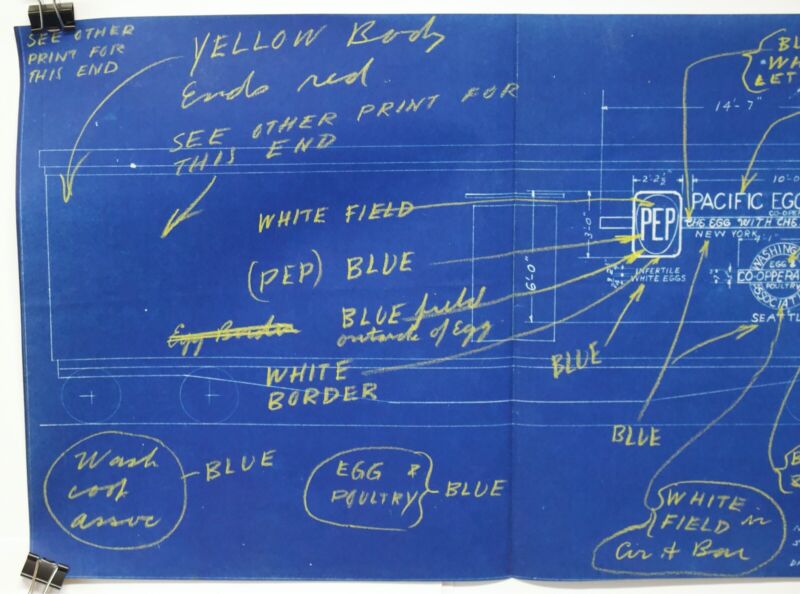 SEE OTHER
PRINT FOR
THIS END
YELLOW Body
Ends red
SEE OTHER PRINT FOR
THIS END
BL
WH
LET
14'-7"
2'-2½"
10'-0
WHITE FIELD
PEP
PACIFIC EGG
CO-OPE
THE EGG WITH THE
NEW YORK
3'-0"
(PEP) BLUE
6'-0"
INFERTILE
WHITE EGGS
4'-1"
WASHING
EGG &
CO-OPERA
POULTRY
ASSOCIATI
SEATTL
BLUE field
outside of Egg
Egg Border
WHITE
BORDER
BLUE
BLUE
Wash
coop
assoc
BLUE
EGG &
POULTRY
BLUE
WHITE
FIELD in
Cir & Bar